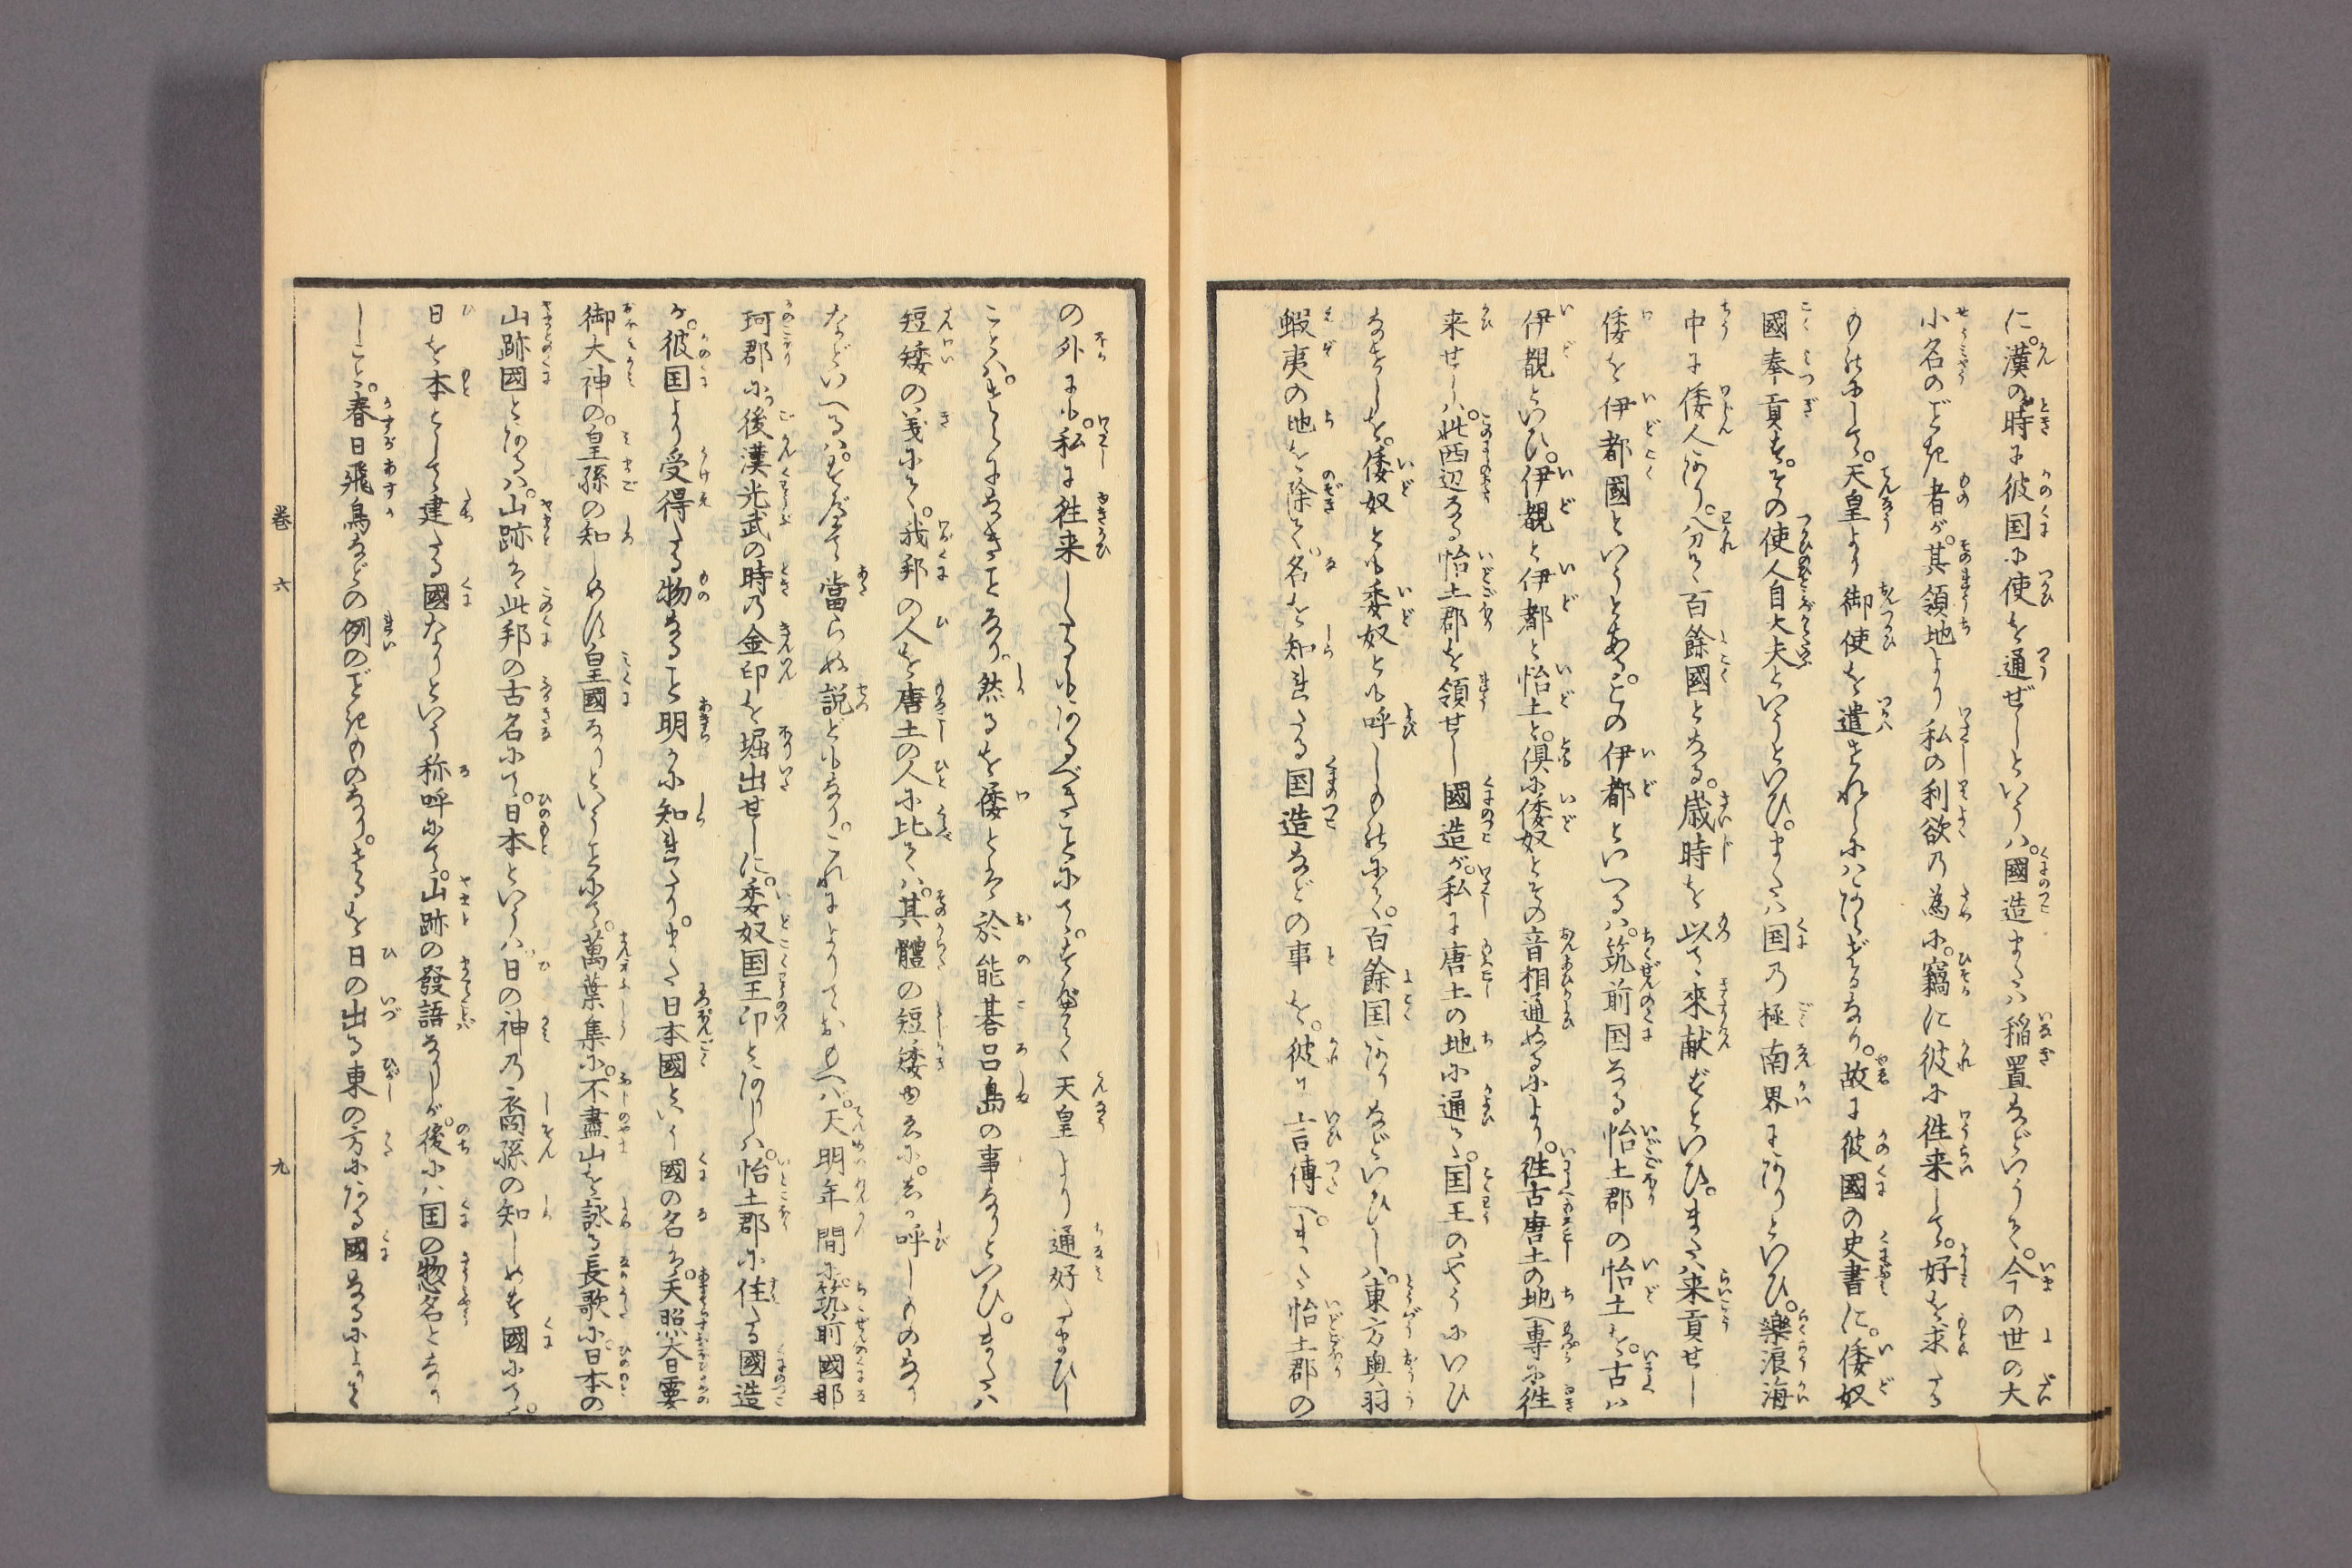 に。漢の時に彼国に使を通ぜしといふハ。國造または稲置などいうて。今の世の大
小名のごとき者が。其領地より私の利欲の為に。竊に彼に徃来して。好を求たる
ものにして。天皇より御使を遣されしにハあらざるなり。故に彼國の史書に。倭奴
國奉貢す。その使人自大夫というといひ。またハ国の極南界にありといひ。樂浪海
中に倭人あり。分て百餘國となる。歳時を以て來献ずといひ。またハ来貢せし
倭を伊都國といふとある。この伊都といへるハ。筑前国なる怡土郡の怡土を。古ハ
伊覩といひ。伊覩と伊都と怡土と。倶に倭奴とその音相通ぬるにより。徃古唐土の地へ専に徃
来せしハ。此西辺なる怡土郡を領せし國造が。私に唐土の地に通て。国王のやうにいひ
なせしを。倭奴とも委奴とも呼しものにて。百餘国ありなどいひしハ。東方奥羽
蝦夷の地を除て。名を知れたる国造などの事を。彼に言傳へ。また怡土郡の
の外にも。私に徃来したるもあるべきことにて。すべて天皇より通好たまひし
ことハ。さらになきことなり。然るを倭とは於能碁呂島の事なりといひ。またハ
短矮の義にて。我邦の人を唐土の人に比てハ。其體の短矮ゆゑに。しか呼しものなり
などいへるハ。すべて當らぬ説どもなり。これによりておもへハ。天明年間に。筑前國那
珂郡にて後漢光武の時の金印を堀出せしに。委奴国王印とありしハ。怡土郡に住たる國造
が。彼国より受得たる物なること明かに知れたり。また日本國といふ國の名は。天照大日孁
御大神の。皇孫の知しめす皇國なりといふことにて。萬葉集に。不盡山を詠る長歌に。日本の
山跡國とあるハ。山跡は此邦の古名にて。日本といふハ。日の神の裔孫の知しめす國にて。
日を本として建たる國なりといふ称呼にて。山跡の發語なりしが。後にハ国の惣名となり
しこと。春日飛鳥などの例のごときものなり。さるを日の出る東の方にある國なるによりて
巻六　九